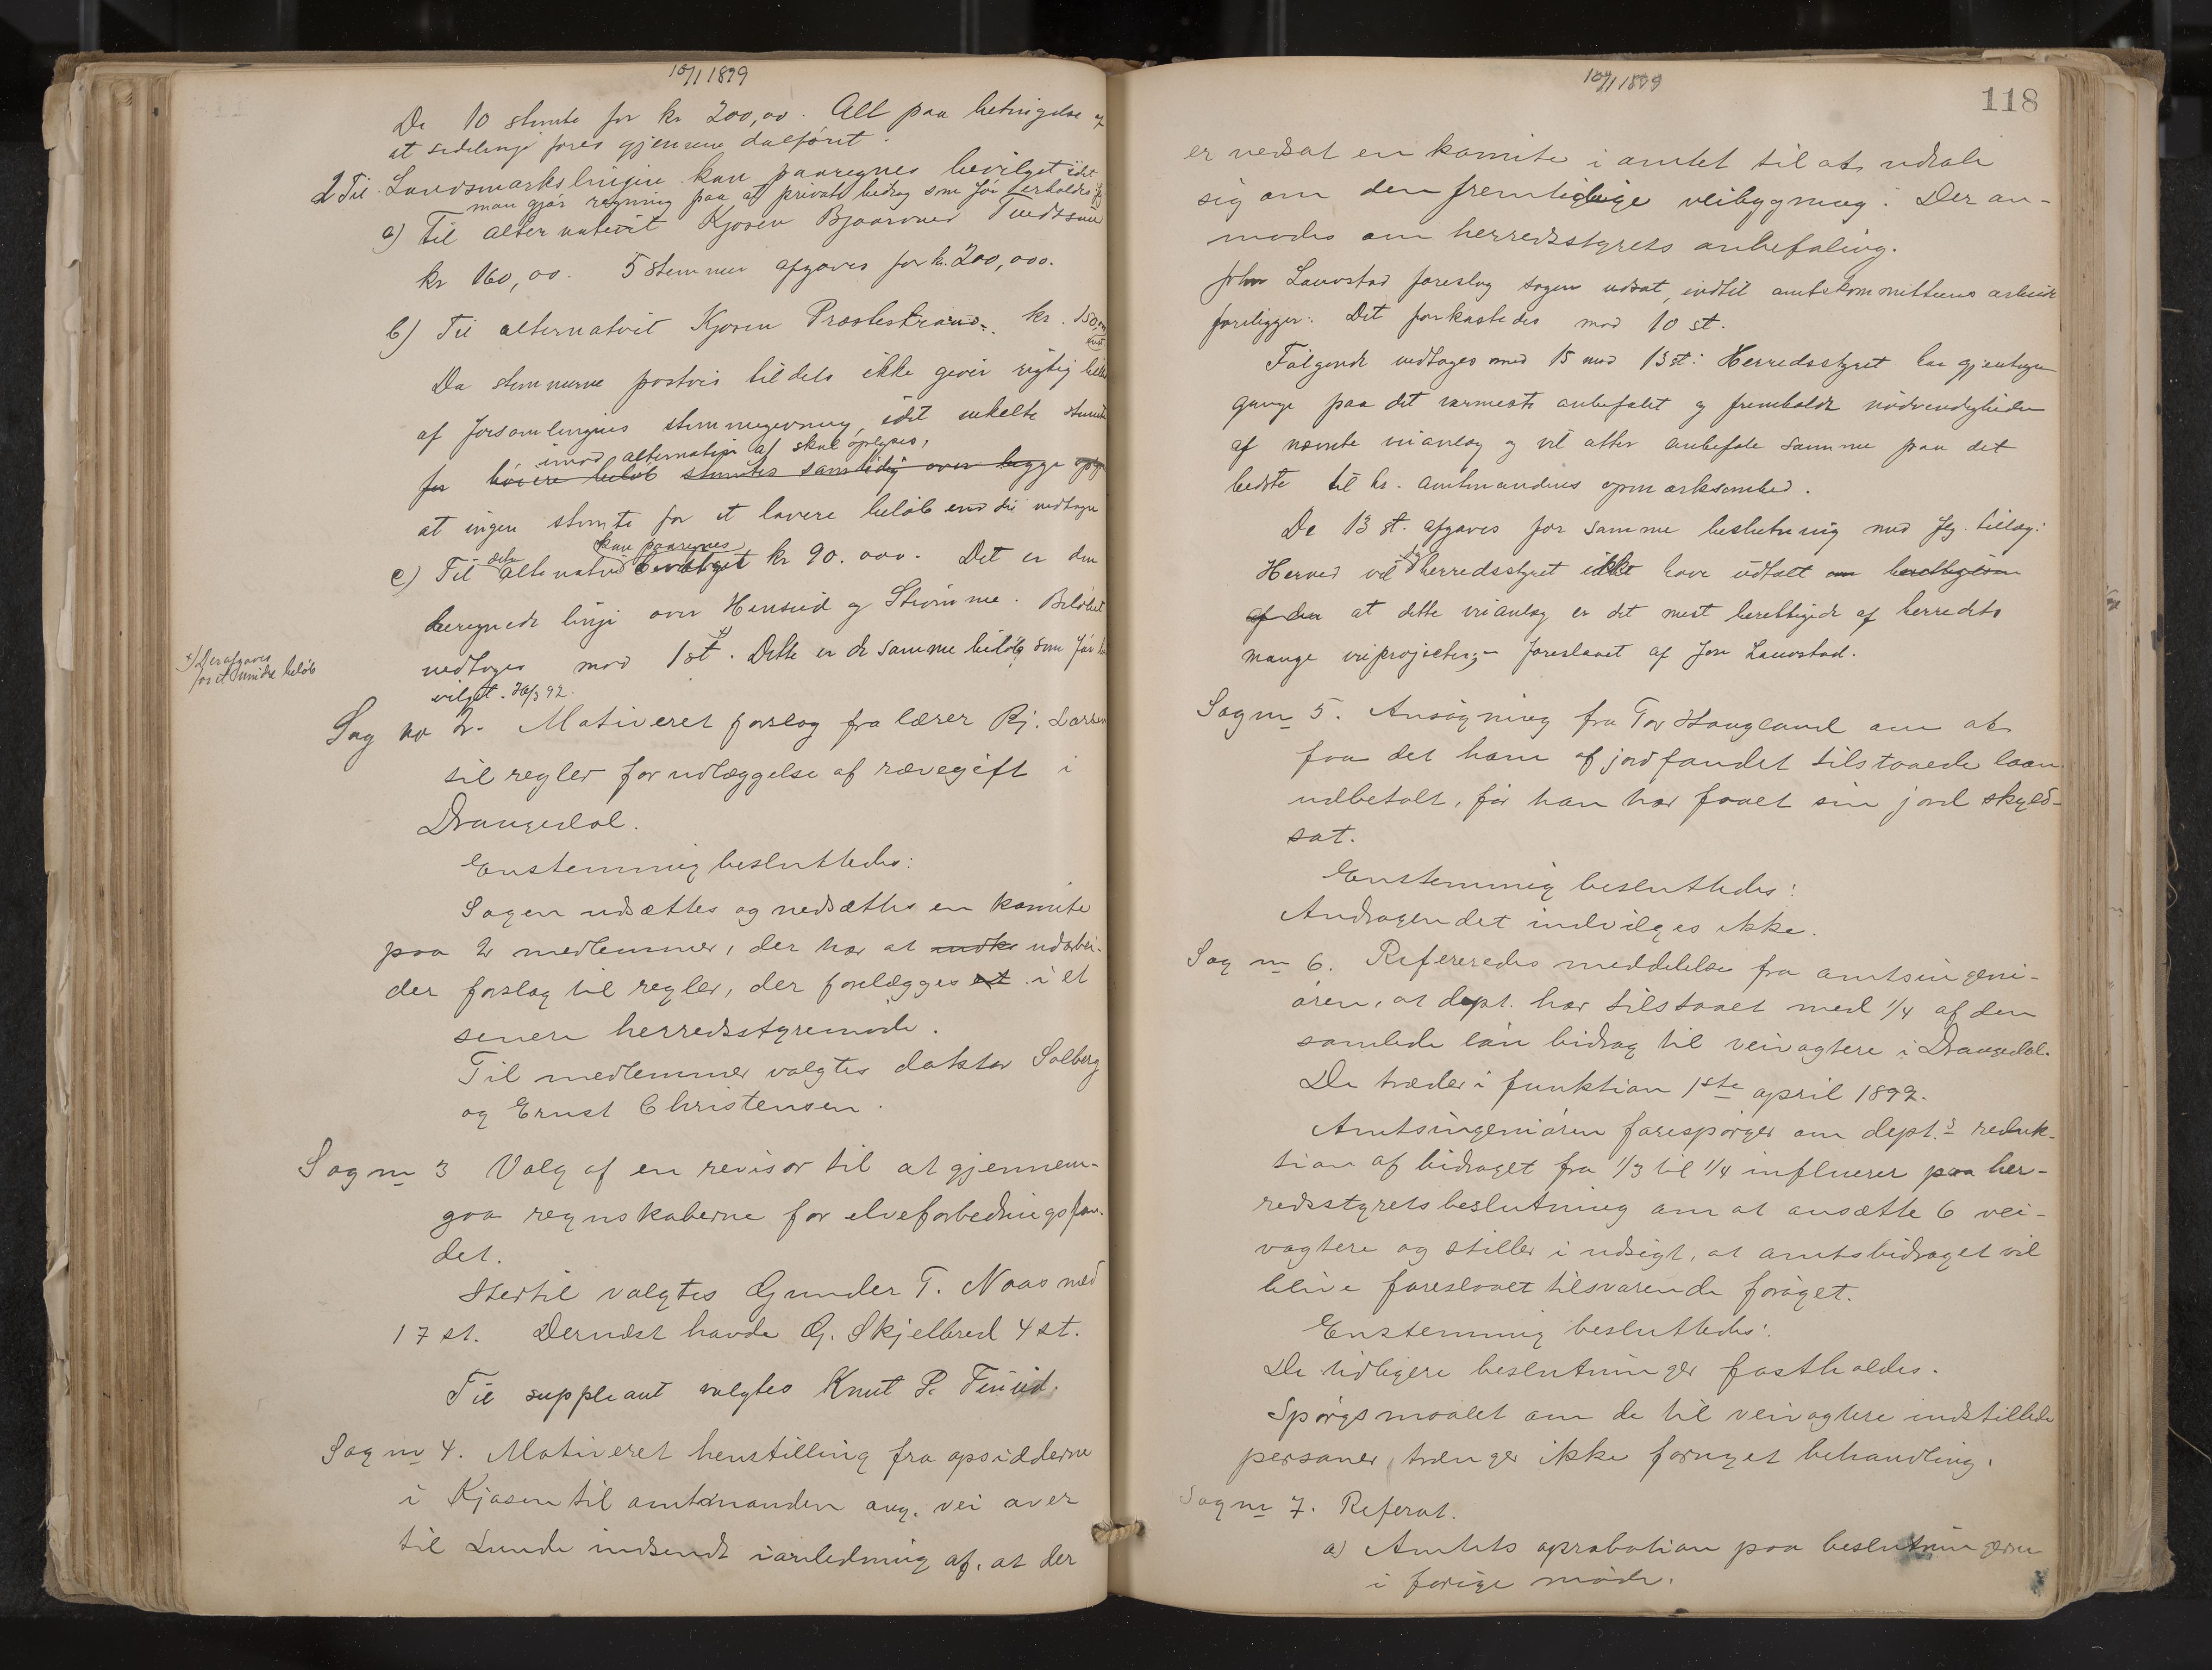 10/1 1899
De 10 stemte for kr 200,00. Alt paa betingelse af
at sidelinje føres gjennem dalføret.
2 Til Landsmarkslinjen kan paaregnes bevilget idet
man gjør regning paa at private bidrag som før
a) Til alternativit Kjosen Bjaarvand Tvedtsund
kr 160,00. 5 stemmer afgaves for kr. 200,000.
b) Til alternativit Kjosen Præstestrand kr. 150,00
Da stemmerne postvis tildels ikke giver rigtig
af forsamlingens stemmegivning, idet enkelte stemte
imod alternativ at skal oplyses,
for høiere beløb stemtes samtidig over begge
at ingen stemte for et lavere beløb end de vedtagne
kan paaregnes
c) Til dette alternativ bevilget kr 90.000. Det er den
beregnede linje over Henseid og Strømme. Beløbet
x) Der afgaves
for et mindre beløb
vedtages mod 1 st. x) Dette er de samme beløb som før be
vilget. 26/3 92.
Sag no 2. Motiveret forslag fra lærer Rj. Larsen
til regler for udlæggelse af rævegift i
Drangedal.
Enstemmig besluttedes:
Sagen udsættes og nedsættes en komite
paa 2 medlemmer, der har at udarbei-
der forslag til regler, der forelægges et i et
senere herredsstyremøde.
Til medlemmer valgtes doktor Solberg
og Ernst Christensen.
Sag nr 3 Valg af en revisor til at gjennem-
gaa regnskaberne for elveforbedringsfon-
det.
Hertil valgtes Gunder T. Naas med
17 st. Dernæst havde G. Skjelbred 4 st.
Til suppleant valgtes Knut P.
Sag nr 4. Motiveret henstilling fra opsidderne
i Kjosen til amtmanden ang. vei over
til Lunde indsendt i anledning af, at der
10/1 1899
118
er nedsat en komite i amtet til at udtale
sig om den fremtidige veibygning. Der an-
modes om herredsstyrets anbefaling.
John Lauvstad foreslog sagen udsat, indtil amtskommitteens arbeide
foreligger. Det forkastedes mod 10 st.
Følgende vedtages med 15 mod 13 st: Herredsstyret har gjentagne
gange paa det varmeste anbefalet og fremholdt nødvendigheden
af nævnte veianlæg og vil atter anbefale samme paa det
bedste til hr. amtmandens opmærksomhed.
De 13 st. afgaves for samme beslutning med flg. tillæg:
Herved vil dog herredsstyret ikke have udtalt om berettigelsen
af den at dette veianlæg er det mest berettigede af herredets
mange veiprojecter; - foreslaaet af Jon Lauvstad.
Sag nr 5. Ansøgning fra Tor Haugland om at
faa det ham af jordfondet tilstaaede laan
udbetalt, før han har faaet sin jord skyld-
sat.
Enstemmig besluttedes:
Andragendet indvilges ikke.
Sag nr 6. Refereredes meddelelse fra amtsingeni-
øren, at dept. har tilstaaet med 1/4 af den
samlede løn bidrag til veivogtere i Drangedal.
De træder i funktion 1ste april 1899.
Amtsingeniøren forespørger om dept.s reduk-
tion af bidraget fra 1/3 til 1/4 influerer paa her-
redsstyrets beslutning om at ansætte 6 vei-
vogtere og stiller i udsigt, at amtsbidraget vil
blive foreslaaet tilsvarende forøget.
Enstemmig besluttedes:
De tidligere beslutninger fastholdes.
Spørgsmaalet om de til veivogtere indstillede
personer, trænger ikke fornyet behandling.
Sag nr 7. Referat.
a) Amtets aprobation paa beslutningerne
i forige møde.